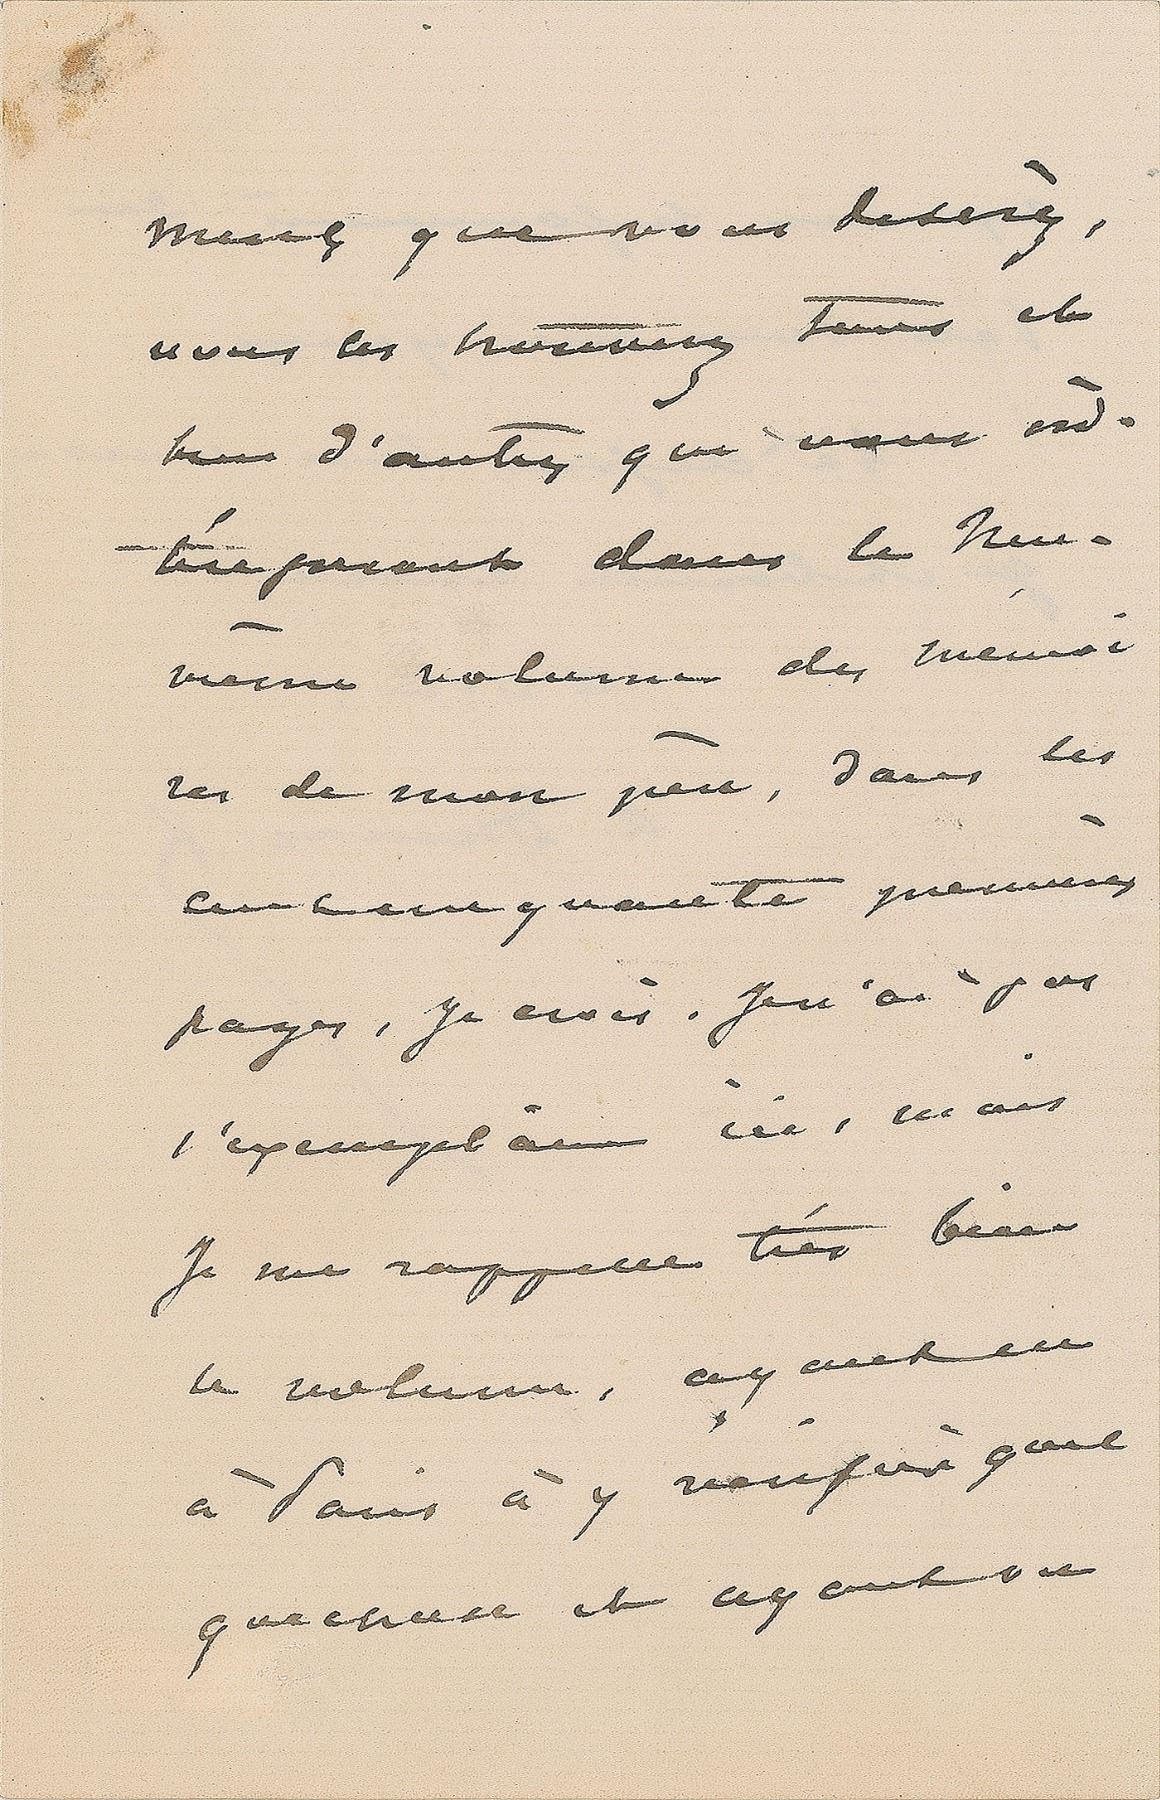 ments que vous désirez,
vous les trouverez tous et
bien d'autres qui vous inté-
téresseront dans le neu-
vième volume des mémoi
res de mon père, dans les
cent cinquante premières
pages, je crois. Je n'ai pas
l'exemplaire ici, mais
Je me rappelle très bien
le volume, ayant eu
à Paris à y vérifier quel
que chose et ayant vu